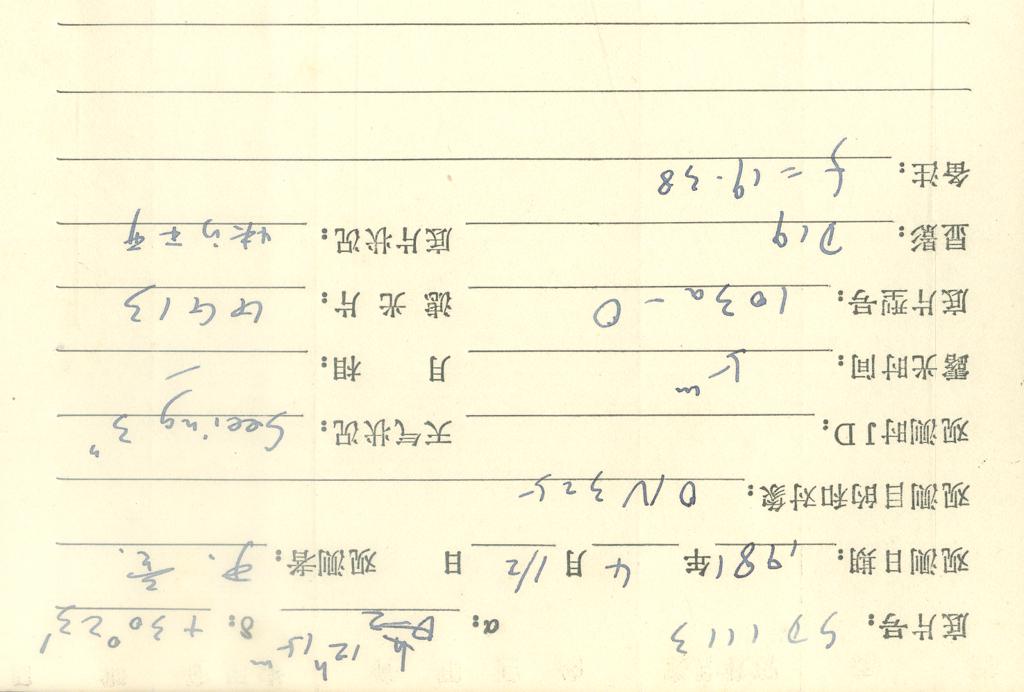 底片号: SD1113 α: 12ʰ15ᵐ δ: +30°23′
观测日期: 1981年 4月 1/2 日 观测者:
观测目的和对象: ON325
观测时JD: 天气状况: Seeing 3″
露光时间: 5ᵐ 月 相: —
底片型号: 103a-O 滤光片: GG13
显影: D19 底片状况:
备注: f=19.38